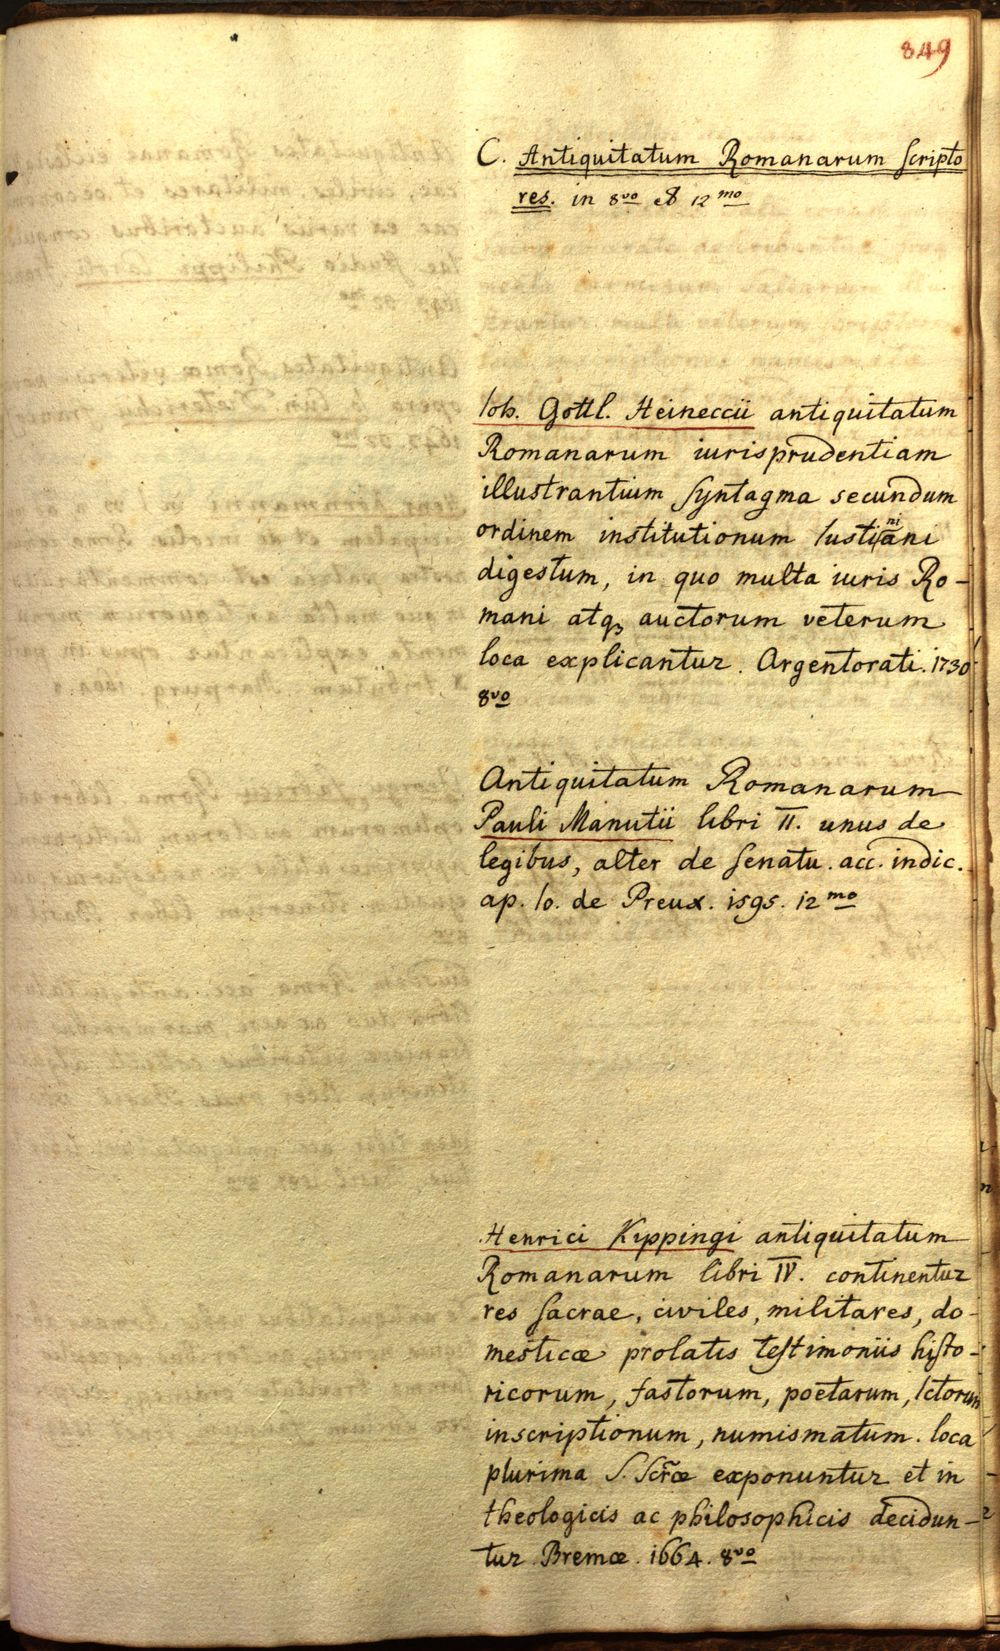 849
C. Antiquitatum Romanarum Scripto
res. in 8vo et 12mo
Ioh. Gottl. Heineccii antiquitatum
Romanarum iurisprudentiam
illustrantium Syntagma secundum
ordinem institutionum Iustiniani
digestum, in quo multa iuris Ro-
mani atq auctorum veterum
loca explicantur. Argentorati. 1730
8vo
Antiquitatum Romanarum
Pauli Manutii libri II. unus de
legibus, alter de Senatu. acc. indic.
ap. Io. de Preux. 1595. 12mo
Henrici Kippingi antiquitatum
Romanarum libri IV. continentur
res Sacrae, civiles, militares, do-
mesticæ prolatis testimoniis histo-
ricorum, fastorum, poetarum, Ictorum
inscriptionum, numismatum. loca
plurima S. Scræ exponuntur et in
theologicis ac philosophicis decidun-
tur. Bremæ. 1664. 8vo